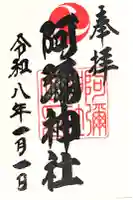 奉拝
阿彌神社
令和八年一月一日